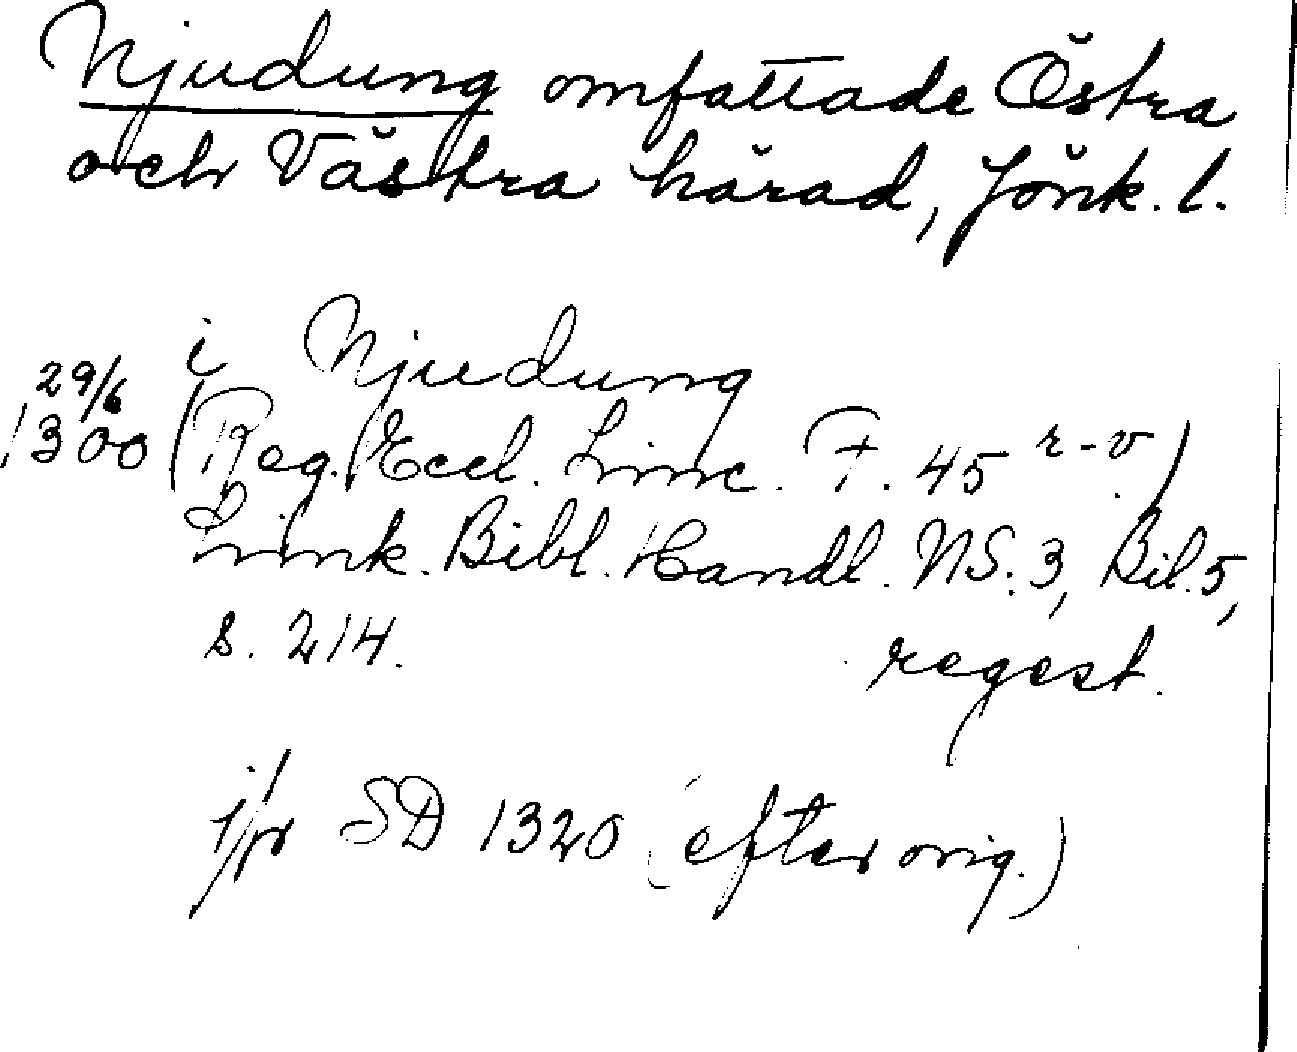 Njudung omfattade Östra
och Västra härad, Jönk. l.
i Njudung
29/6
1300 (Reg. Eccl. Linc. F. 45 r-v)
Link. Bibl. Handl. NS. 3, Bil. 5,
s. 214. regest.
jfr SD 1320 (efter orig.)